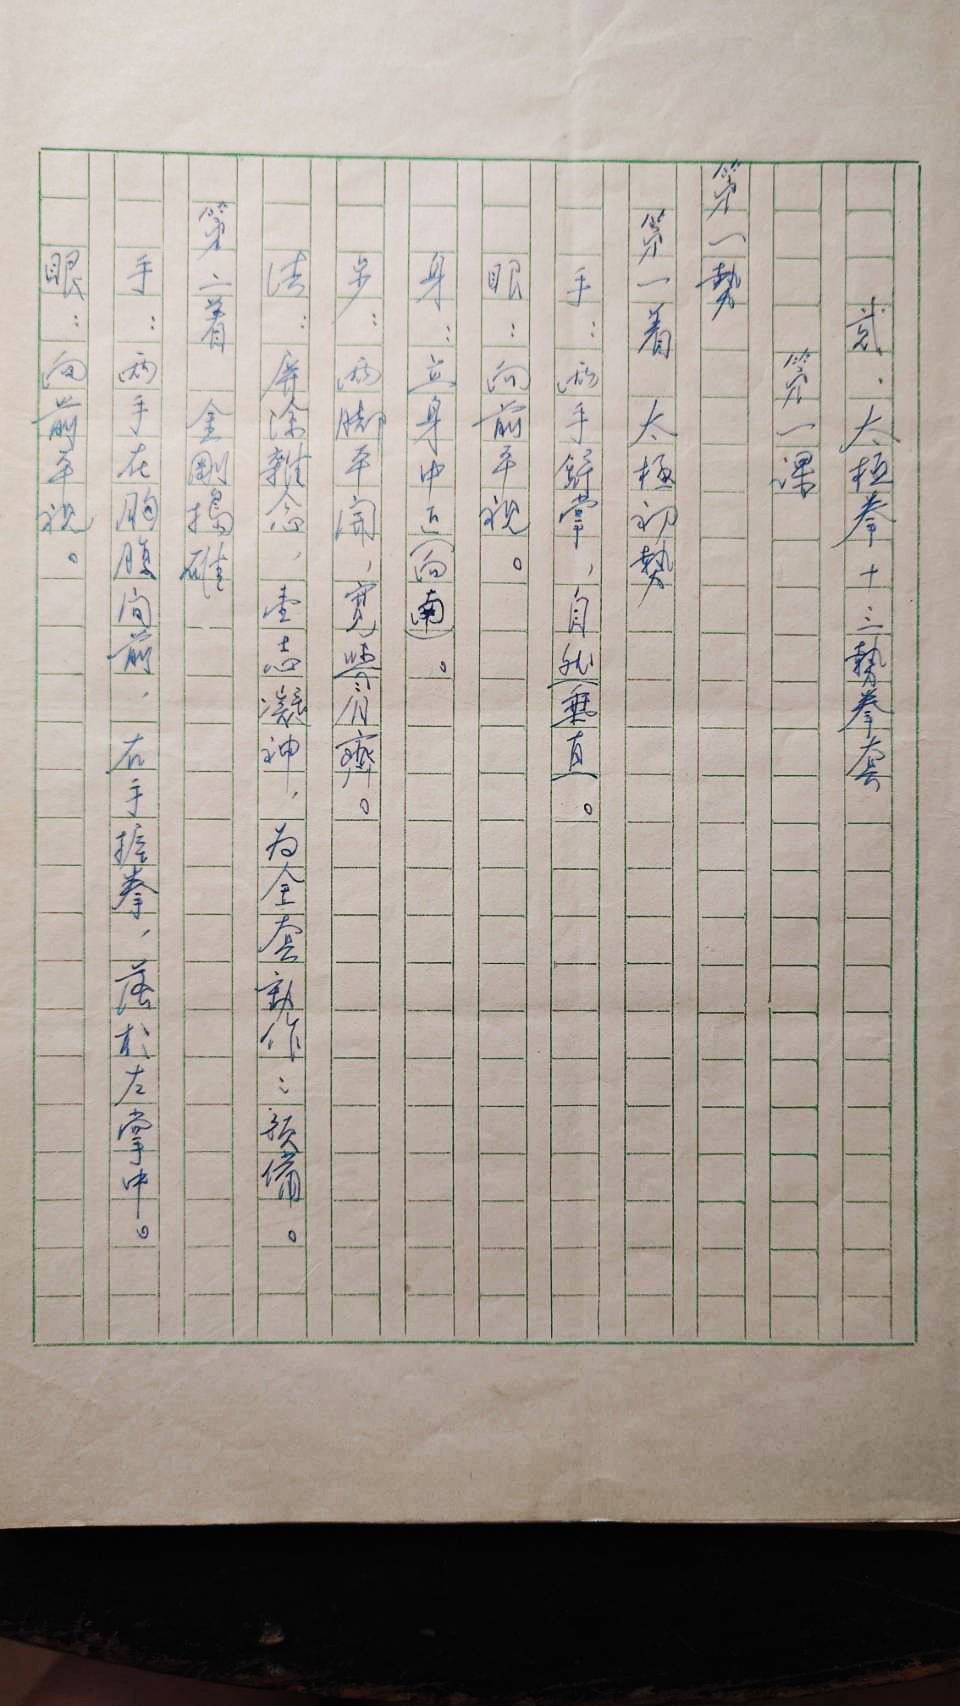 貳．太極拳十三勢拳套
第一課
第一勢
第一着　太極初勢
手：兩手舒掌，自然(垂直)。
眼：向前平視。
身：立身中正(向南)。
步：兩脚平開，寬與肩齊。
法：屏除雜念，壹志凝神，为全套動作：預備。
第二着　金剛搗碓
手：兩手在胸腹间前，右手握拳，落於左掌中。
眼：向前平視。